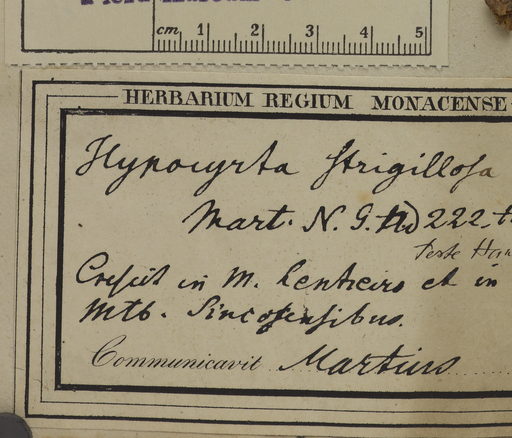 cm 1 2 3 4 5
HERBARIUM REGIUM MONACENSE
Hypocyrta strigillosa
Mart. N. G. 222. t.
Teste Han
Crescit in M. et in
Mtb.
Communicavit Martius